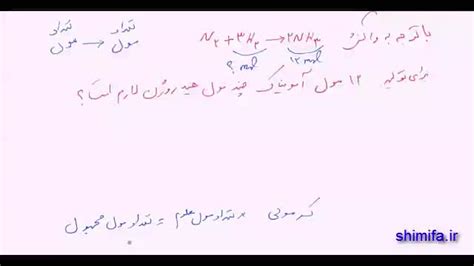 با توجه به واکنش N₂ + 3H₂ → 2NH₃
? mol 12 mol
تعداد مول → تعداد مول
برای تولید ۱۲ مول آمونیاک چند مول هیدروژن لازم است؟
کسر مولی × تعداد مول معلوم = تعداد مول مجهول
shimifa.ir